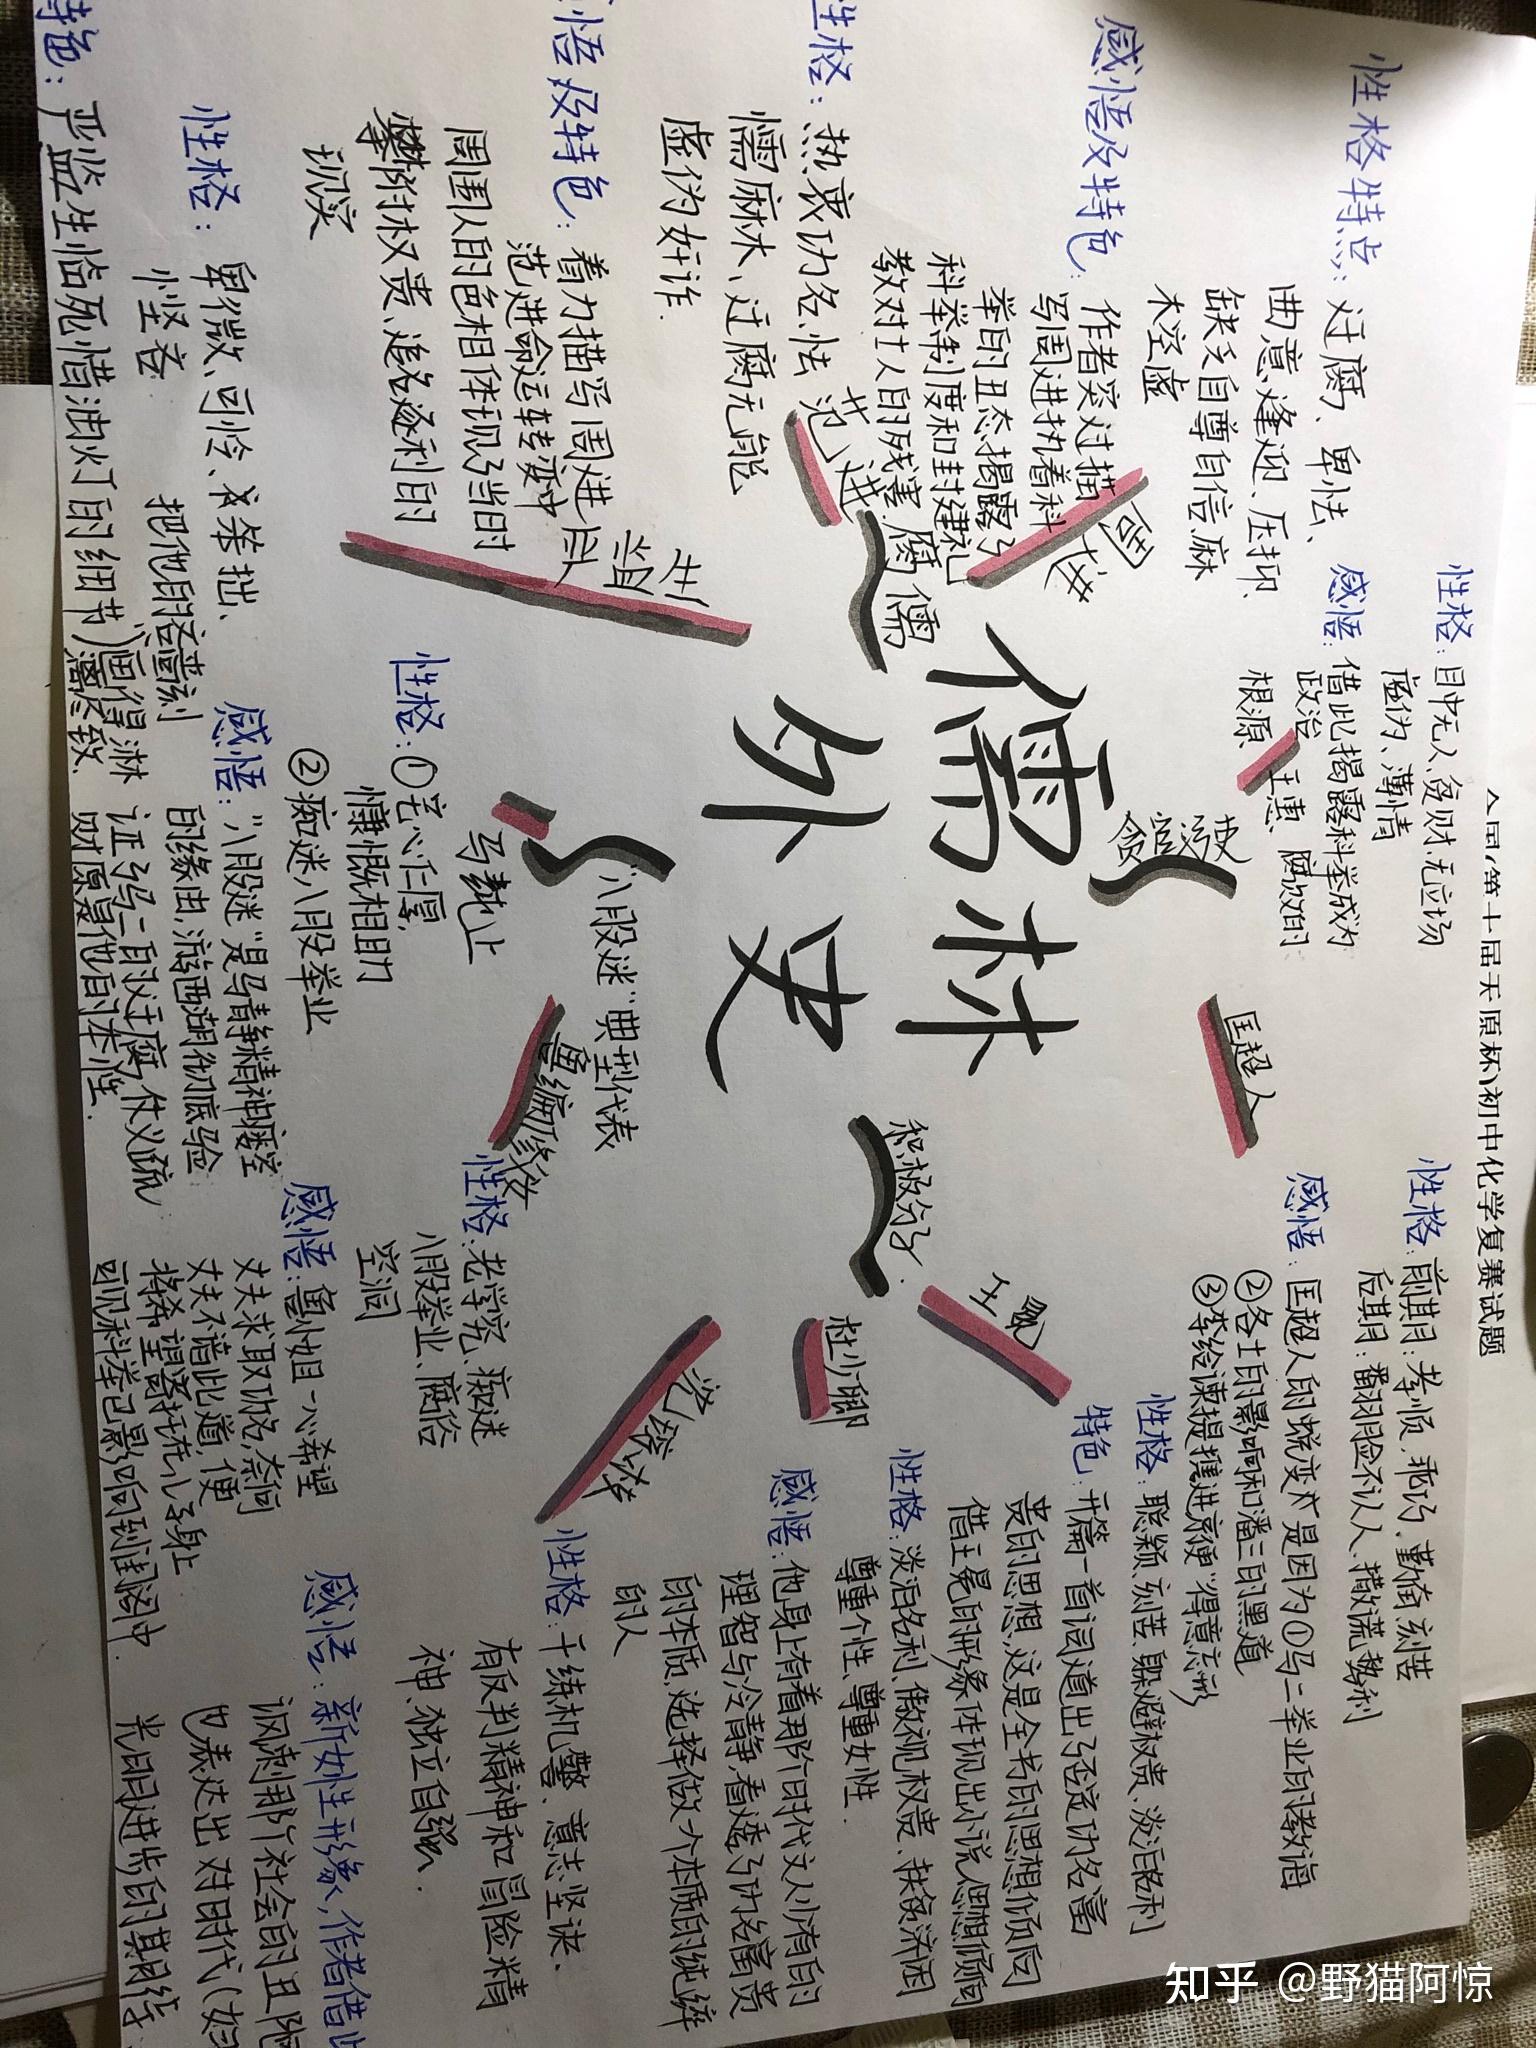 全国(第十届天原杯)初中化学复赛试题
儒林
外史
腐儒
周进
性格特点：迂腐、卑怯、
曲意逢迎、压抑、
缺乏自尊自信、麻
木空虚
感悟及特色：作者突过描
写周进执着科
举的丑态,揭露了
科举制度和封建礼
教对士人的残害
范进
性格：热衷功名、怯
懦麻木、迂腐无能
虚伪奸诈.
感悟及特色：着力描写周进
范进命运转变中
周围人的色相体现了当时
攀附权贵、追名逐利的
现实
严监生
性格：卑微、可怜、
悭吝
特色：严监生临死惜油灯的细节
把他的吝啬刻
画得淋
漓尽致.
贪婪
王惠
性格：目中无人、贪财、无立场
虚伪、薄情
感悟：借此揭露科举成为
政治腐败的
根源
匡超人
性格：前期：孝顺、乖巧、勤奋、刻苦
后期：翻脸不认人、撒谎、势利
感悟：匡超人的蜕变是因为①马二举业的教诲
②各士的影响和潘三的黑道
③李给谏提携进京便"得意忘形
积极分子.
王冕
性格：聪颖、刻苦、躲避权贵、淡泊名利
特色：开篇一首词道出了否定功名富
贵的思想,这是全书的思想倾向
借王冕的形象体现出小说思想倾向
杜少卿
性格：淡泊名利、傲视权贵、扶贫济困
尊重个性、尊重女性.
感悟：他身上有着那个时代文人少有的
理智与冷静,看透了功名富贵
的本质,选择做一个本质的纯粹
的人
性格：干练机警、意志坚决、
有反判精神和冒险精
神、独立自强.
感悟：新女性形象,作者借此
讽刺那个社会的丑陋
也表达出对时代(妇
光明进步的期待
"八股迷"典型代表
马纯上
性格：①古心仁厚,
慷慨相助
②痴迷八股举业
感悟："八股迷"是马静精神空
的缘由,游西湖彻底验
证马二的迂腐,仗义疏
财原是他的本性.
鲁编修
性格：老学究、痴迷
八股举业、腐俗
空洞
感悟：鲁小姐一心希望
丈夫求取功名,奈何
丈夫不谙此道,便
将希望寄托在儿子身上
可见科举已影响到闺阁中.
知乎 @野猫阿惊